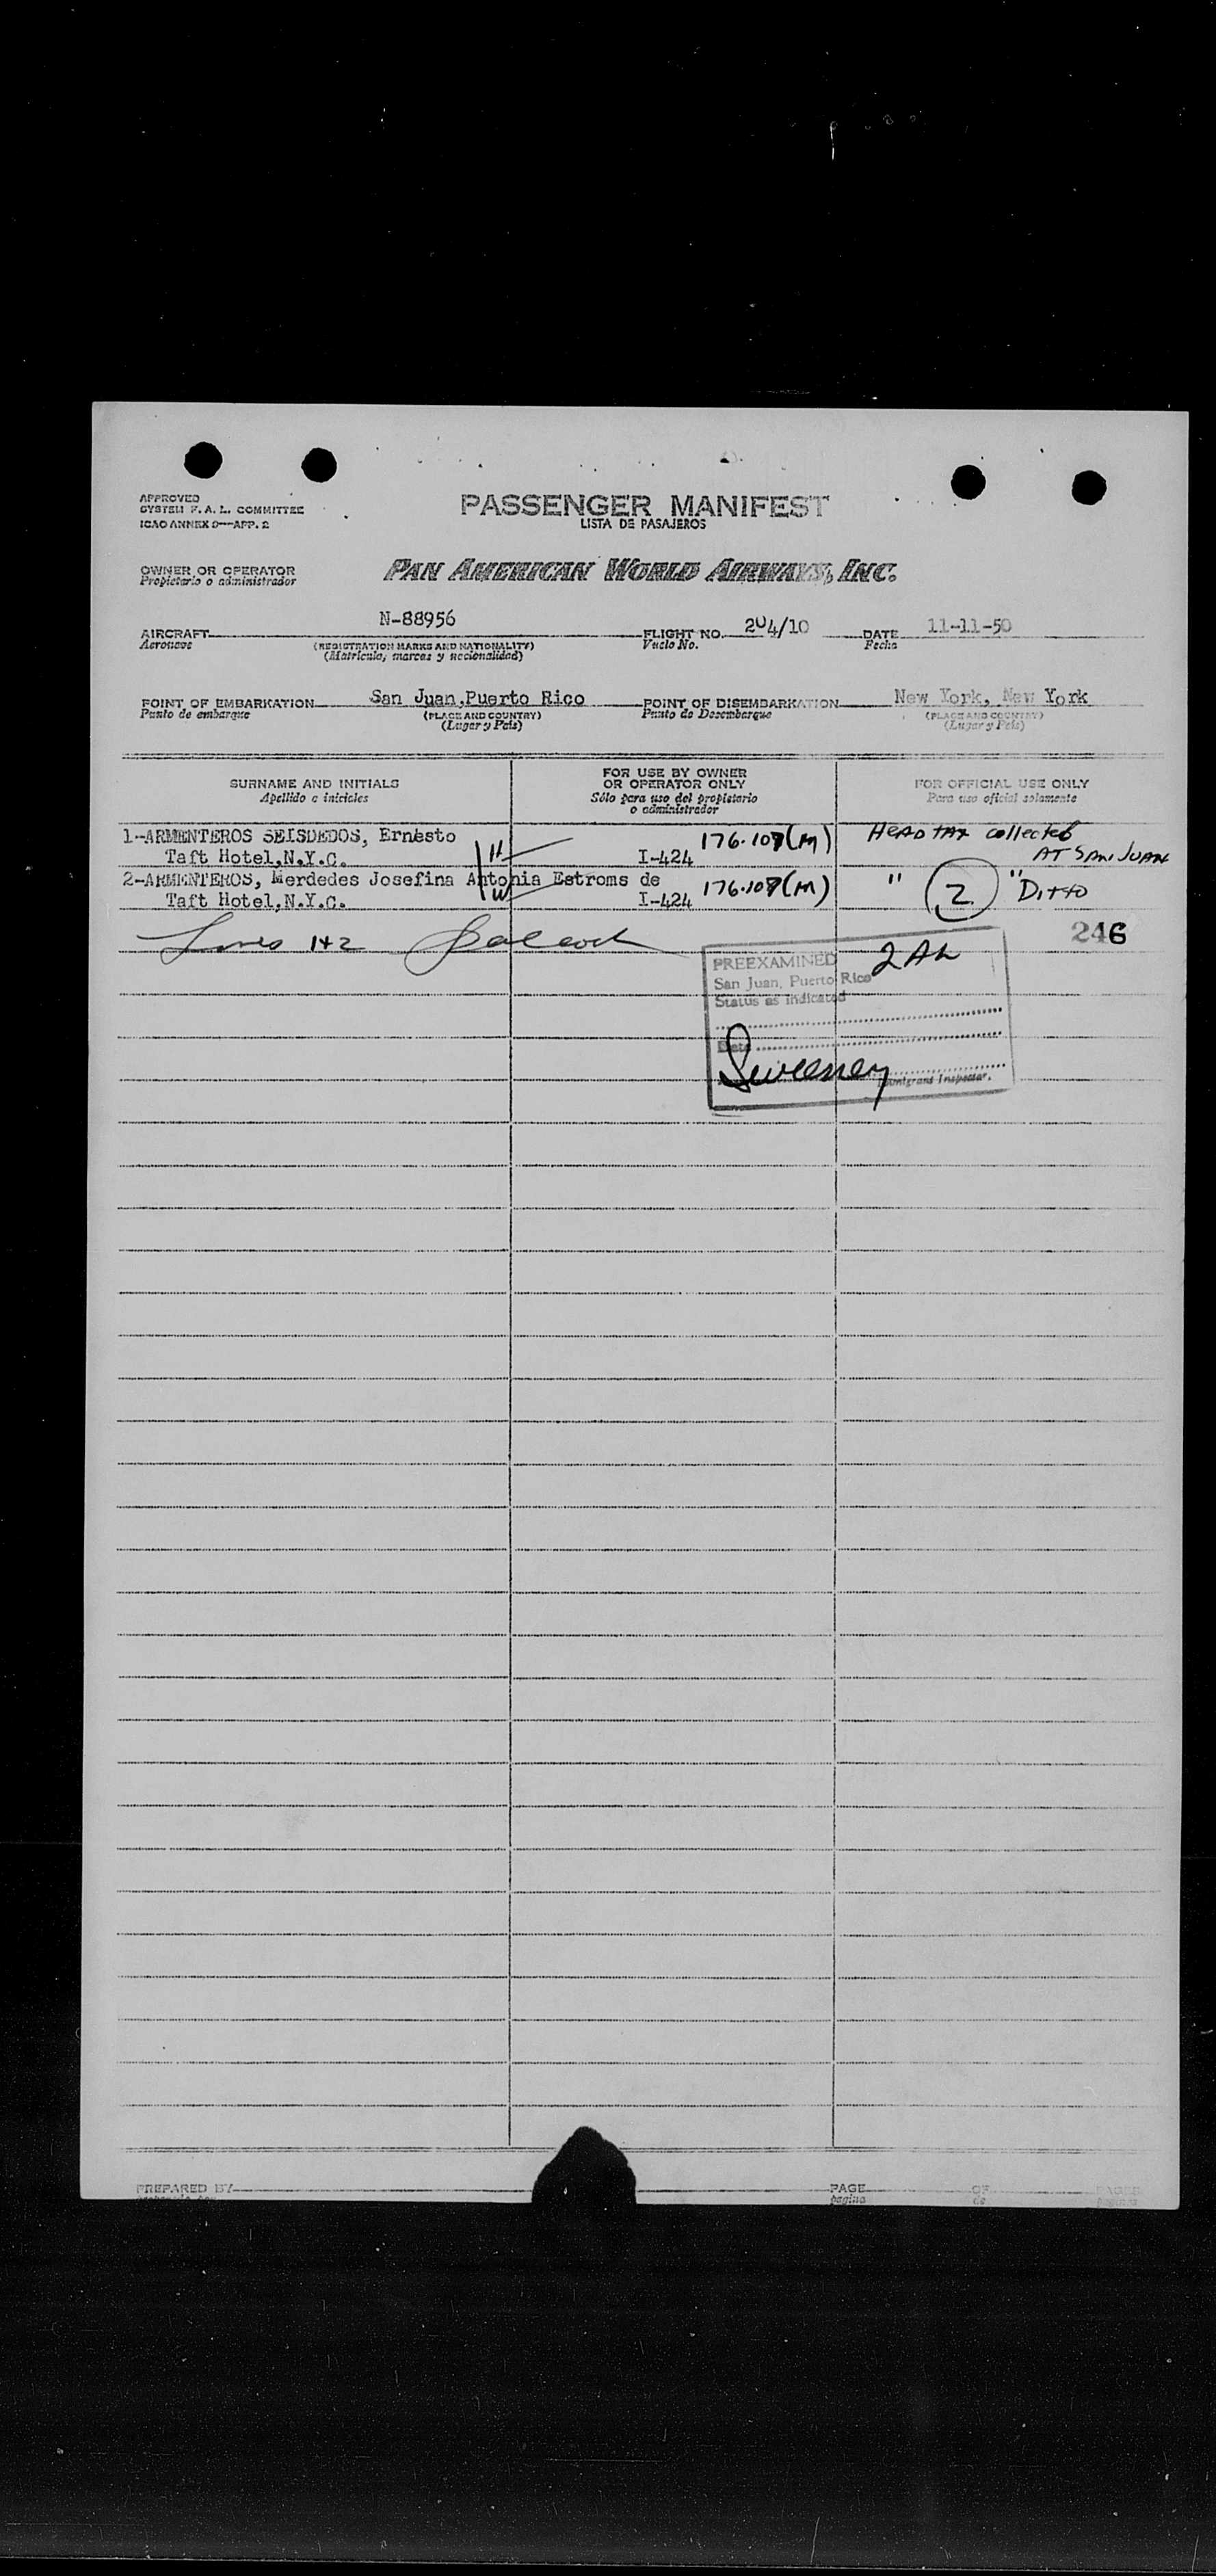 APPROVED
SYSTEM F. A. L. COMMITTEE
ICAO ANNEX 9—APP. 2
PASSENGER MANIFEST
LISTA DE PASAJEROS
OWNER OR OPERATOR
Propietario o administrador
PAN AMERICAN WORLD AIRWAYS, INC.
AIRCRAFT N-88956 FLIGHT NO. 204/10 DATE 11-11-50
Aeronave (REGISTRATION MARKS AND NATIONALITY) Vuelo No. Fecha
(Matrícula, marcas y nacionalidad)
POINT OF EMBARKATION San Juan,Puerto Rico POINT OF DISEMBARKATION New York, New York
Punto de embarque (PLACE AND COUNTRY) Punto de Desembarque (PLACE AND COUNTRY)
(Lugar y País) (Lugar y País)
SURNAME AND INITIALS
Apellido e iniciales
FOR USE BY OWNER
OR OPERATOR ONLY
Sólo para uso del propietario
o administrador
FOR OFFICIAL USE ONLY
Para uso oficial solamente
1-ARMENTEROS SEISDEDOS, Ernesto 176.107(M) HEAD TAX collected
Taft Hotel,N.Y.C. H I-424 AT SAN JUAN
2-ARMENTEROS, Merdedes Josefina Antonia Estroms de 176.107(M) " 2 " Ditto
Taft Hotel,N.Y.C. W I-424
Lines 1+2
246
PREEXAMINED 2AL
San Juan, Puerto Rico
Status as indicated
Date
Sweeney
Immigrant Inspector.
PREPARED BY PAGE OF PAGES
pagina de